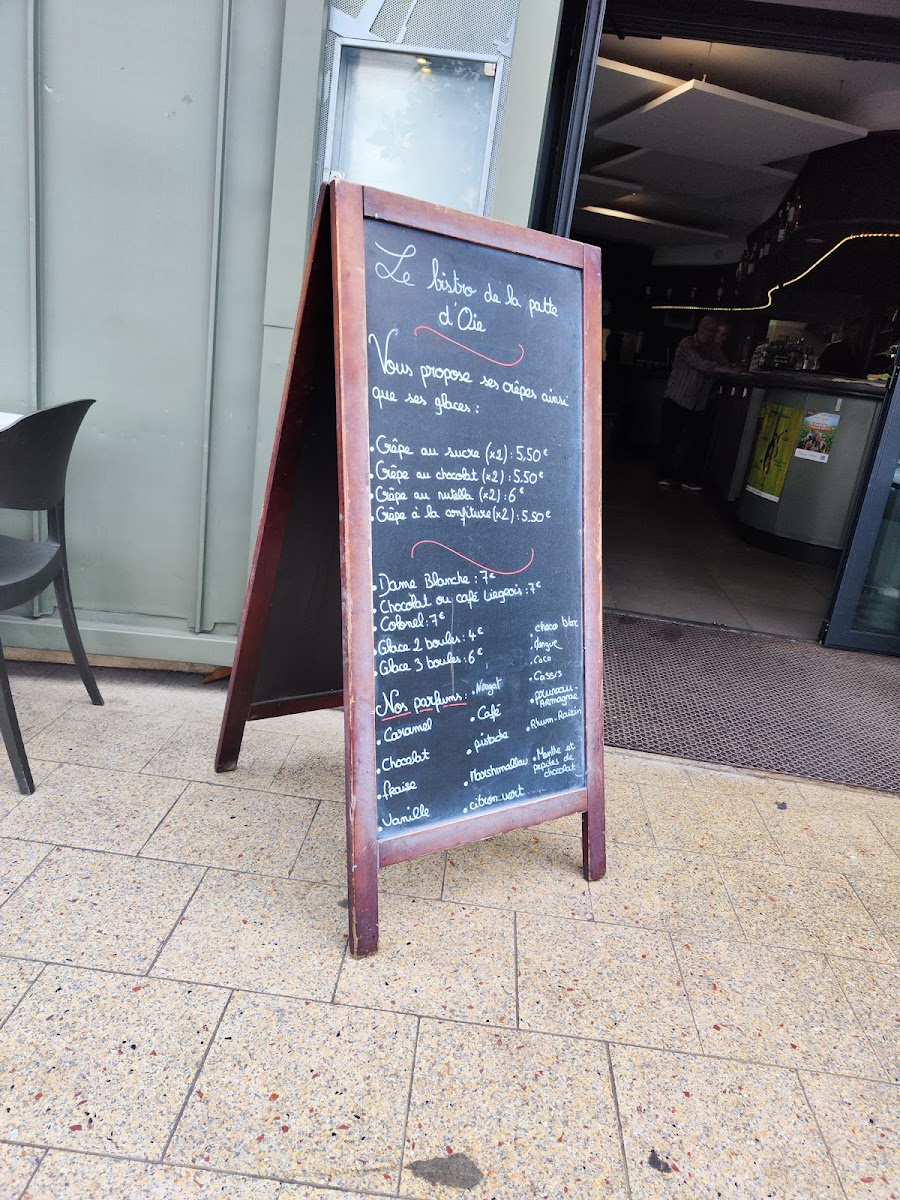 Le bistro de la patte
d'Oie
Vous propose ses crêpes ainsi
que ses glaces :
• Crêpe au sucre (x2) : 5,50€
• Crêpe au chocolat (x2) : 5.50€
• Crêpe au nutella (x2) : 6€
• Crêpe à la confiture (x2) : 5.50€
• Dame Blanche : 7€
• Chocolat ou café Liegeois : 7€
• Colonel : 7€
• Glace 2 boules : 4€
• Glace 3 boules : 6€
Nos parfums :
• Caramel
• Chocolat
• fraise
• Vanille
• Nougat
• Café
• pistache
• Marshmallow
• citron-vert
• choco blanc
• Mangue
• Coco
• Cassis
• pruneau-
Armagnac
• Rhum-Raisin
• Menthe et
pepites de
chocolat